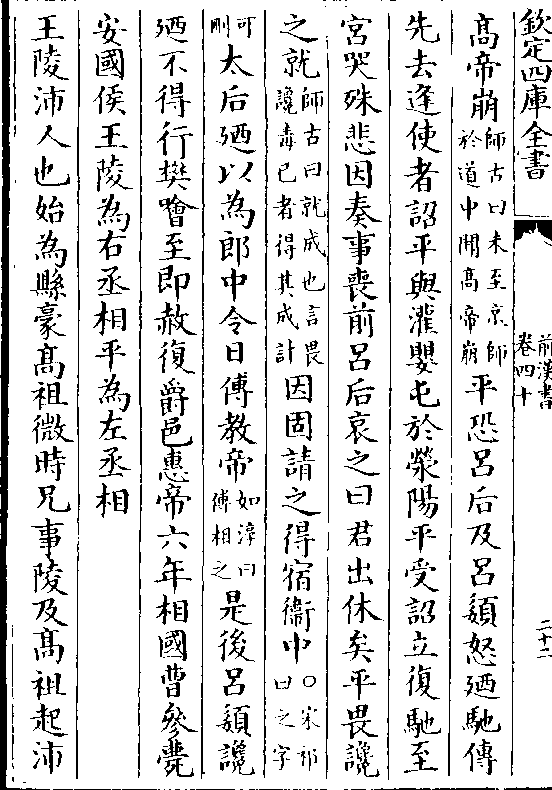 欽定四庫全書
前漢書
卷四十
二十二
高帝崩師古曰未至京師於道中聞高帝崩平恐呂后及呂頦怒廼馳傳
先去逢使者詔平與灌嬰屯於滎陽平受詔立復馳至
宮哭殊悲因奏事喪前呂后哀之曰君出休矣平畏讒
之就師古曰就成也言畏讒毒已者得其成計因固請之得宿衞中○宋祁曰之字
可刪太后廼以為郎中令日傅教帝如淳曰傅相之是後呂頦讒
廼不得行樊噲至即赦復爵邑惠帝六年相國曹參薨
安國侯王陵為右丞相平為左丞相
王陵沛人也始為縣豪高祖微時兄事陵及高祖起沛